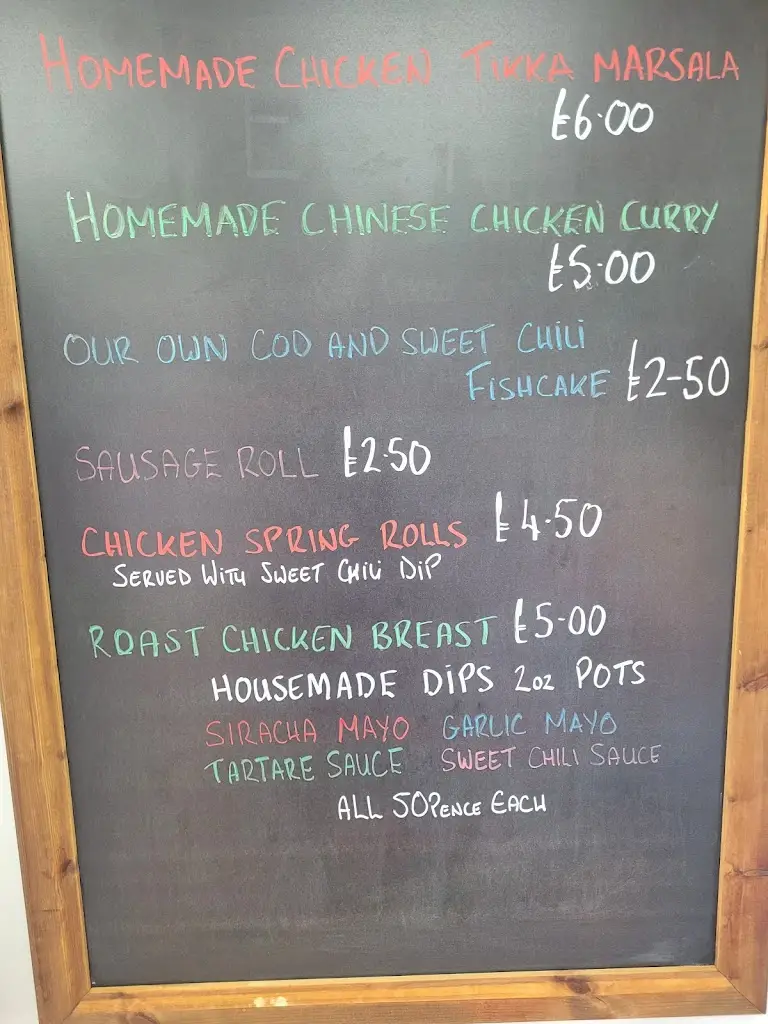 HOMEMADE CHICKEN TIKKA MARSALA
£6.00
HOMEMADE CHINESE CHICKEN CURRY
£5.00
OUR OWN COD AND SWEET CHILI
FISHCAKE £2-50
SAUSAGE ROLL £2.50
CHICKEN SPRING ROLLS £4.50
SERVED WITH SWEET CHILI DIP
ROAST CHICKEN BREAST £5-00
HOUSEMADE DIPS 2oz POTS
SIRACHA MAYO GARLIC MAYO
TARTARE SAUCE SWEET CHILI SAUCE
ALL 50PENCE EACH